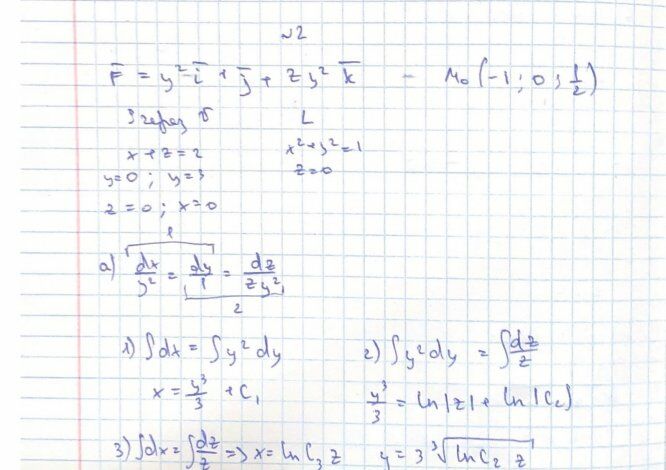 №2
F̅ = y² i̅ + j̅ + z y² k̅ – M₀ (-1; 0; 1/2)
Э через σ L
x + z = 2 x² + y² = 1
y = 0; y = 3 z = 0
z = 0; x = 0
1
a) dx/y² = dy/1 = dz/zy²
2
1) ∫dx = ∫y² dy 2) ∫y² dy = ∫dz/z
x = y³/3 + C₁ y³/3 = ln|z| + ln|C₂|
3) ∫dx = ∫dz/z => x = ln C₃ z y = 3 ∛(ln C₂ z)